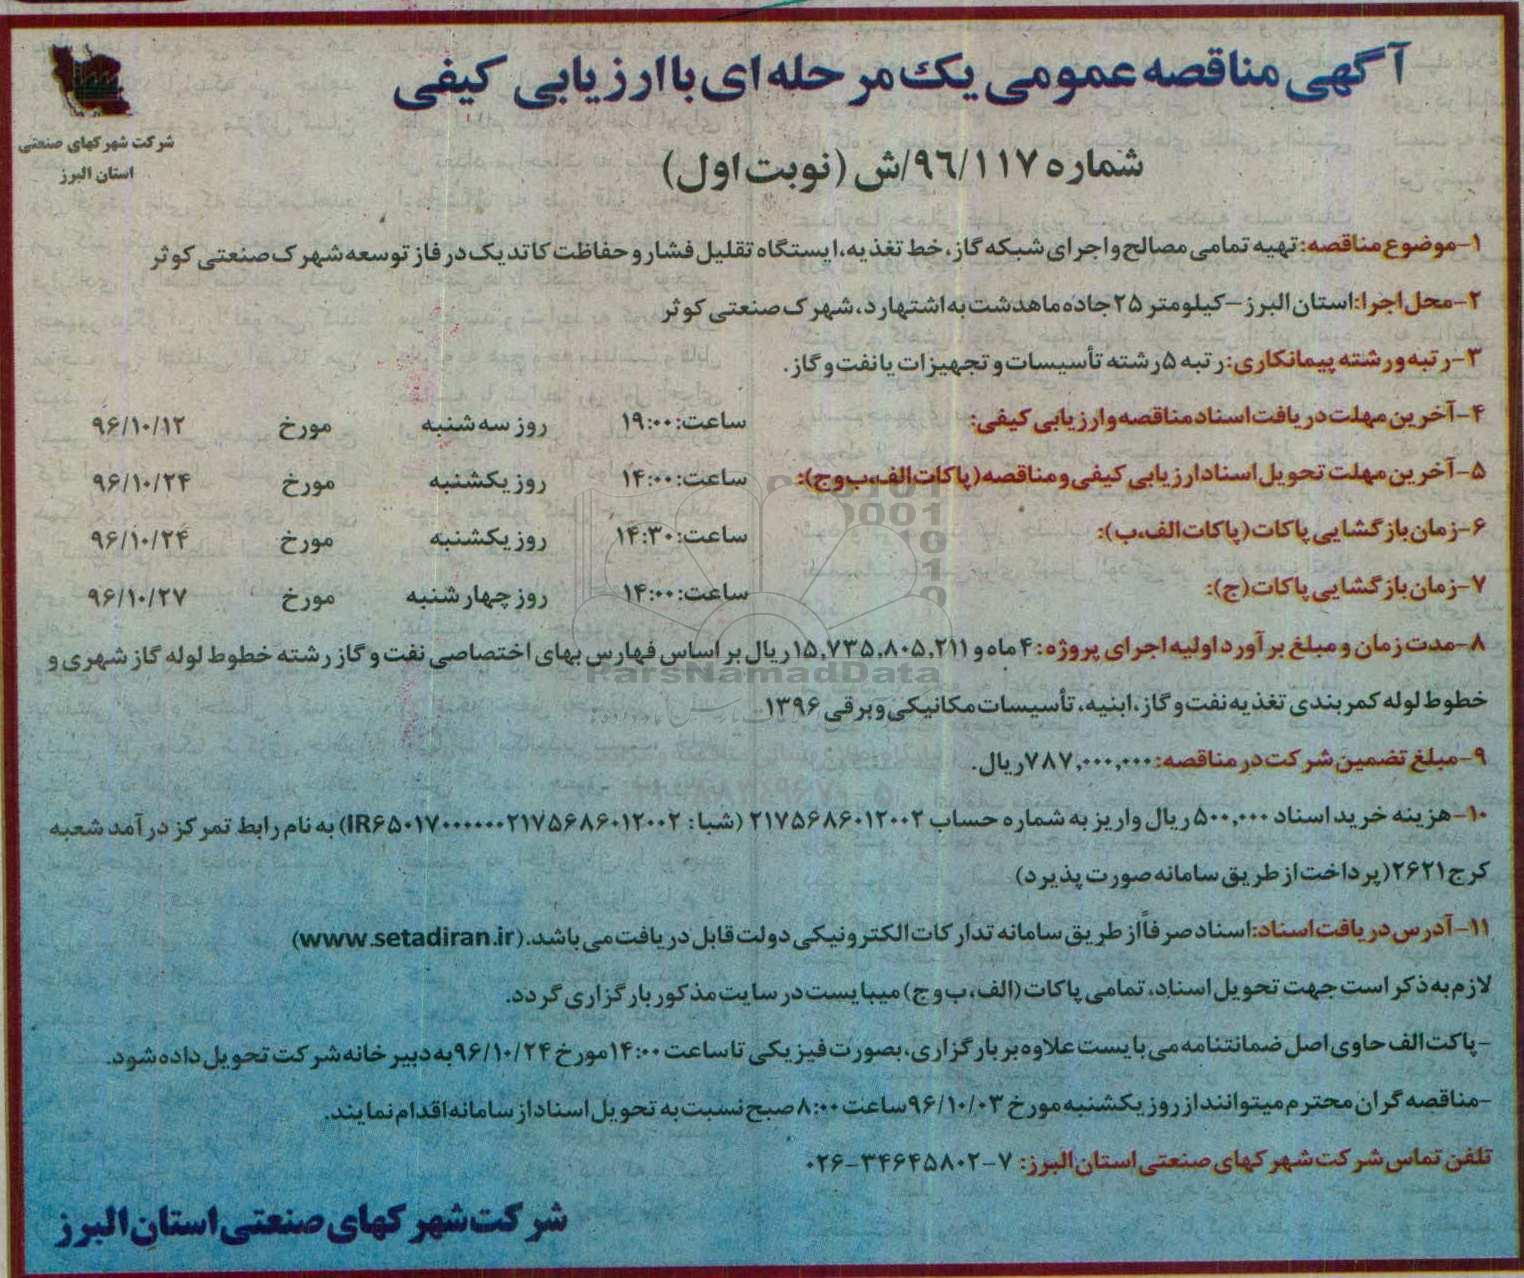 آگهی مناقصه عمومی یک مرحله ای با ارزیابی کیفی
شرکت شهرکهای صنعتی
استان البرز
شماره ۹۶/۱۱۷/ش (نوبت اول)
۱-موضوع مناقصه: تهیه تمامی مصالح و اجرای شبکه گاز، خط تغذیه، ایستگاه تقلیل فشار و حفاظت کاتدیک در فاز توسعه شهرک صنعتی کوثر
۲-محل اجرا: استان البرز – کیلومتر ۲۵ جاده ماهدشت به اشتهارد، شهرک صنعتی کوثر
۳-رتبه و رشته پیمانکاری: رتبه ۵ رشته تأسیسات و تجهیزات یا نفت و گاز.
۴-آخرین مهلت دریافت اسناد مناقصه و ارزیابی کیفی: ساعت: ۱۹:۰۰ روز سه شنبه مورخ ۹۶/۱۰/۱۲
۵-آخرین مهلت تحویل اسناد ارزیابی کیفی و مناقصه (پاکات الف، ب و ج): ساعت: ۱۴:۰۰ روز یکشنبه مورخ ۹۶/۱۰/۲۴
۶-زمان بازگشایی پاکات (پاکات الف، ب): ساعت: ۱۴:۳۰ روز یکشنبه مورخ ۹۶/۱۰/۲۴
۷-زمان بازگشایی پاکات (ج): ساعت: ۱۴:۰۰ روز چهارشنبه مورخ ۹۶/۱۰/۲۷
۸-مدت زمان و مبلغ برآورد اولیه اجرای پروژه: ۴ ماه و ۱۵,۷۳۵,۸۰۵,۲۱۱ ریال بر اساس فهارس بهای اختصاصی نفت و گاز رشته خطوط لوله گاز شهری و
خطوط لوله کمربندی تغذیه نفت و گاز، ابنیه، تأسیسات مکانیکی و برقی ۱۳۹۶
۹-مبلغ تضمین شرکت در مناقصه: ۷۸۷,۰۰۰,۰۰۰ ریال.
۱۰-هزینه خرید اسناد ۵۰۰,۰۰۰ ریال واریز به شماره حساب ۲۱۷۵۶۸۶۰۱۲۰۰۲ (شبا: IR۶۵۰۱۷۰۰۰۰۰۰۰۲۱۷۵۶۸۶۰۱۲۰۰۲) به نام رابط تمرکز درآمد شعبه
کرج ۲۶۲۱ (پرداخت از طریق سامانه صورت پذیرد)
۱۱-آدرس دریافت اسناد: اسناد صرفاً از طریق سامانه تدارکات الکترونیکی دولت قابل دریافت می باشد. (www.setadiran.ir)
لازم به ذکر است جهت تحویل اسناد، تمامی پاکات (الف، ب و ج) میبایست در سایت مذکور بارگزاری گردد.
-پاکت الف حاوی اصل ضمانتنامه می بایست علاوه بر بارگزاری، بصورت فیزیکی تا ساعت ۱۴:۰۰ مورخ ۹۶/۱۰/۲۴ به دبیرخانه شرکت تحویل داده شود.
-مناقصه گران محترم میتوانند از روز یکشنبه مورخ ۹۶/۱۰/۰۳ ساعت ۸:۰۰ صبح نسبت به تحویل اسناد از سامانه اقدام نمایند.
تلفن تماس شرکت شهرکهای صنعتی استان البرز: ۷-۰۲۶-۳۴۶۴۵۸۰۲
شرکت شهرکهای صنعتی استان البرز
ParsNamadData